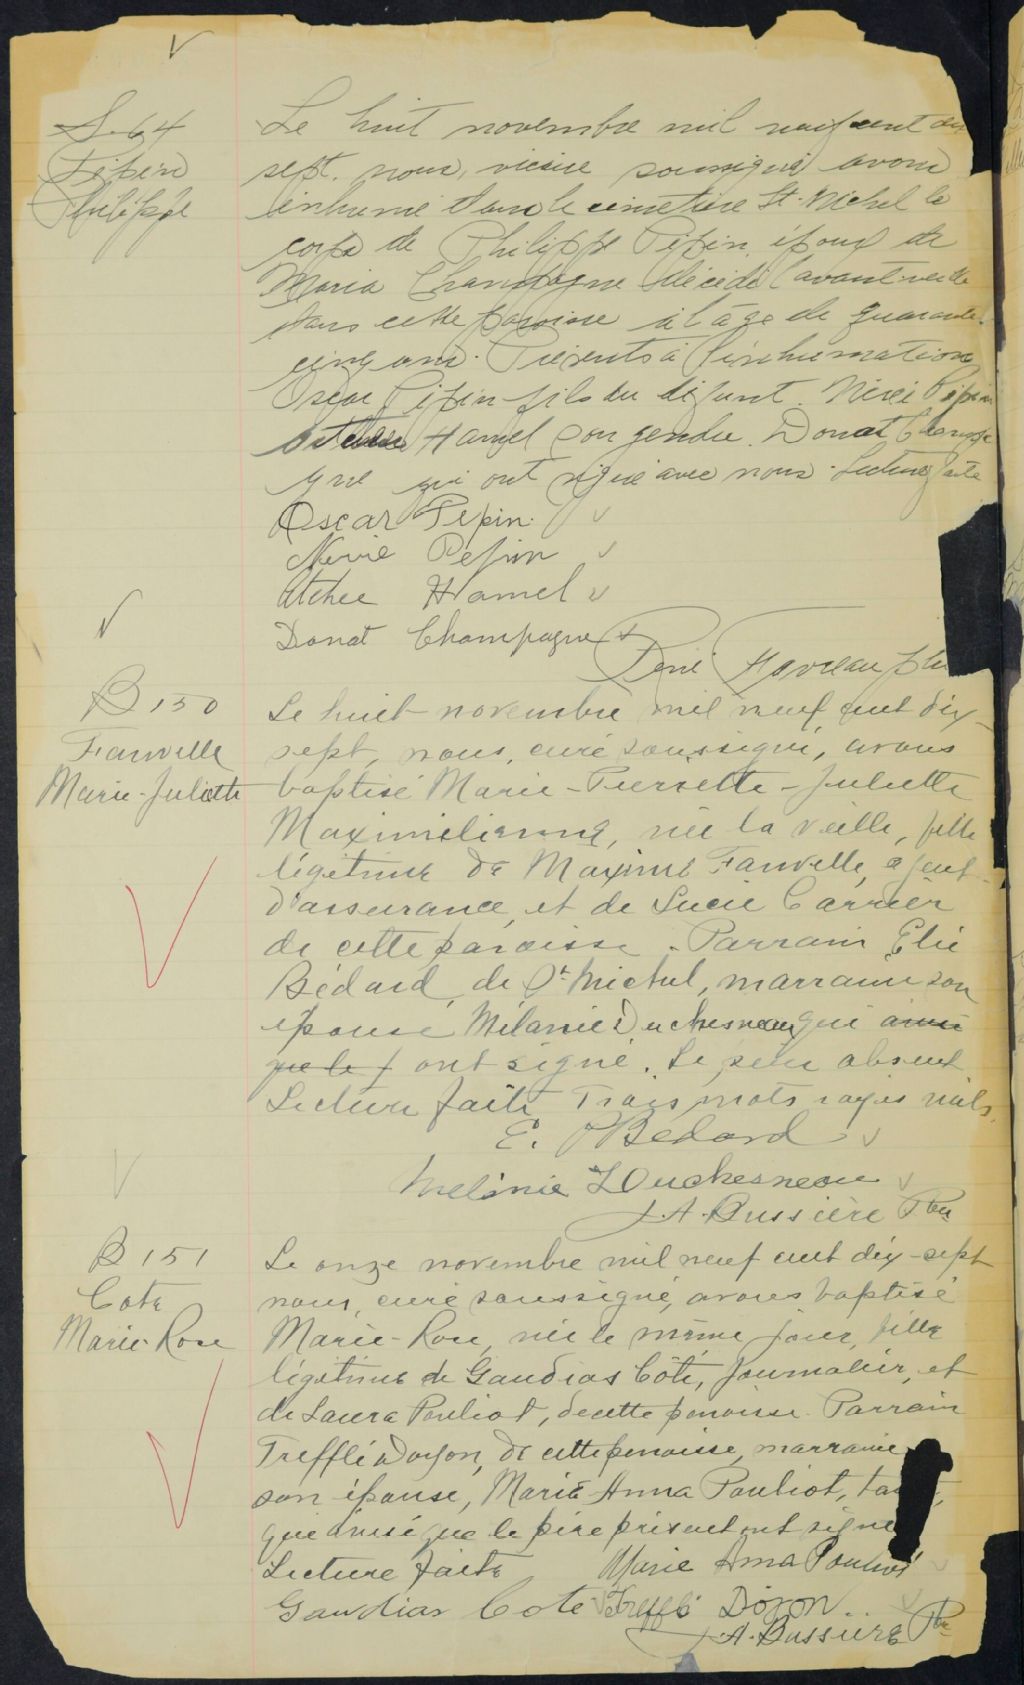 S. 64
Pepin
Philippe
Le huit novembre mil neuf cent dix
sept. nous, vicaire soussigné avons
inhumé dans le cimetière St. Michel le
corps de Philippe Pepin, époux de
Maria Champagne décédé l'avant-veille
dans cette paroisse à l'âge de quarante
cinq ans. Présents à l'inhumation
Oscar Pepin fils du défunt. Pepin
Hamel son gendre. Donat Champa
gne qui ont signé avec nous. Lecture faite
Oscar Pepin.
Pepin
Hamel
Donat Champagne
ptre
B 150
Fauvelle
Marie-Juliette
Le huit novembre mil neuf cent dix-
sept, nous, curé soussigné, avons
baptisé Marie-Pierrette-Juliette
Maximilienne, née la veille, fille
légitime de Maxime Fauvelle, agent
d'assurance, et de Lucie Carrier
de cette paroisse. Parrain Elie
Bédard, de St Michel, marraine son
épouse Mélanie Duchesneau qui ainsi
que le p ont signé. Le père absent
Lecture faite Trois mots rayés nuls.
E. Bedard
Melanie Duchesneau
J. A. Bussière Ptre
B 151
Cote
Marie-Rose
Le onze novembre mil neuf cent dix-sept
nous, curé soussigné, avons baptisé
Marie-Rose, née le même jour, fille
légitime de Gaudias Côté, journalier, et
de Laura Pouliot, de cette paroisse. Parrain
Trefflé Doyon, de cette paroisse, marraine
son épouse, Marie-Anna Pouliot,
que ainsi que le père présent ont signé
Lecture faite Marie Anna Pouliot
Gaudias Cote Trefflé Doyon
J. A. Bussière Ptre